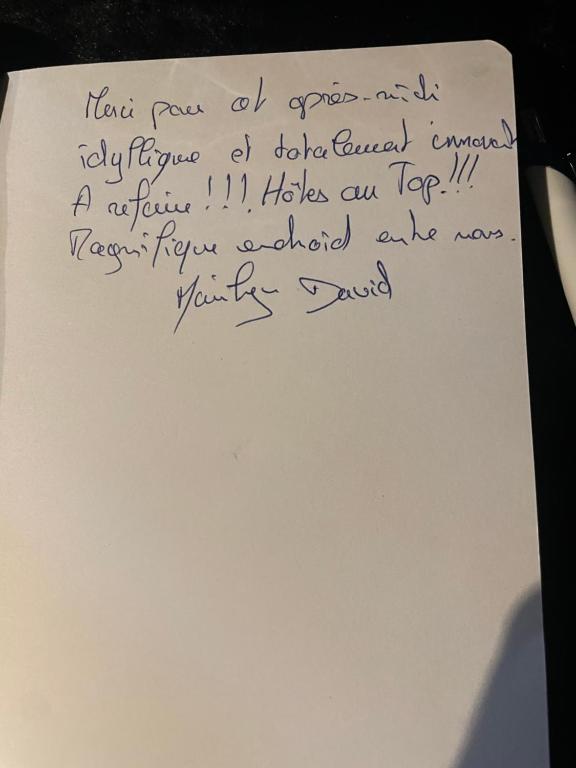 Merci pour cet après-midi
idyllique et totalement innovant
A refaire !!! Hôtes au Top !!!
Magnifique endroit entre nous.
David